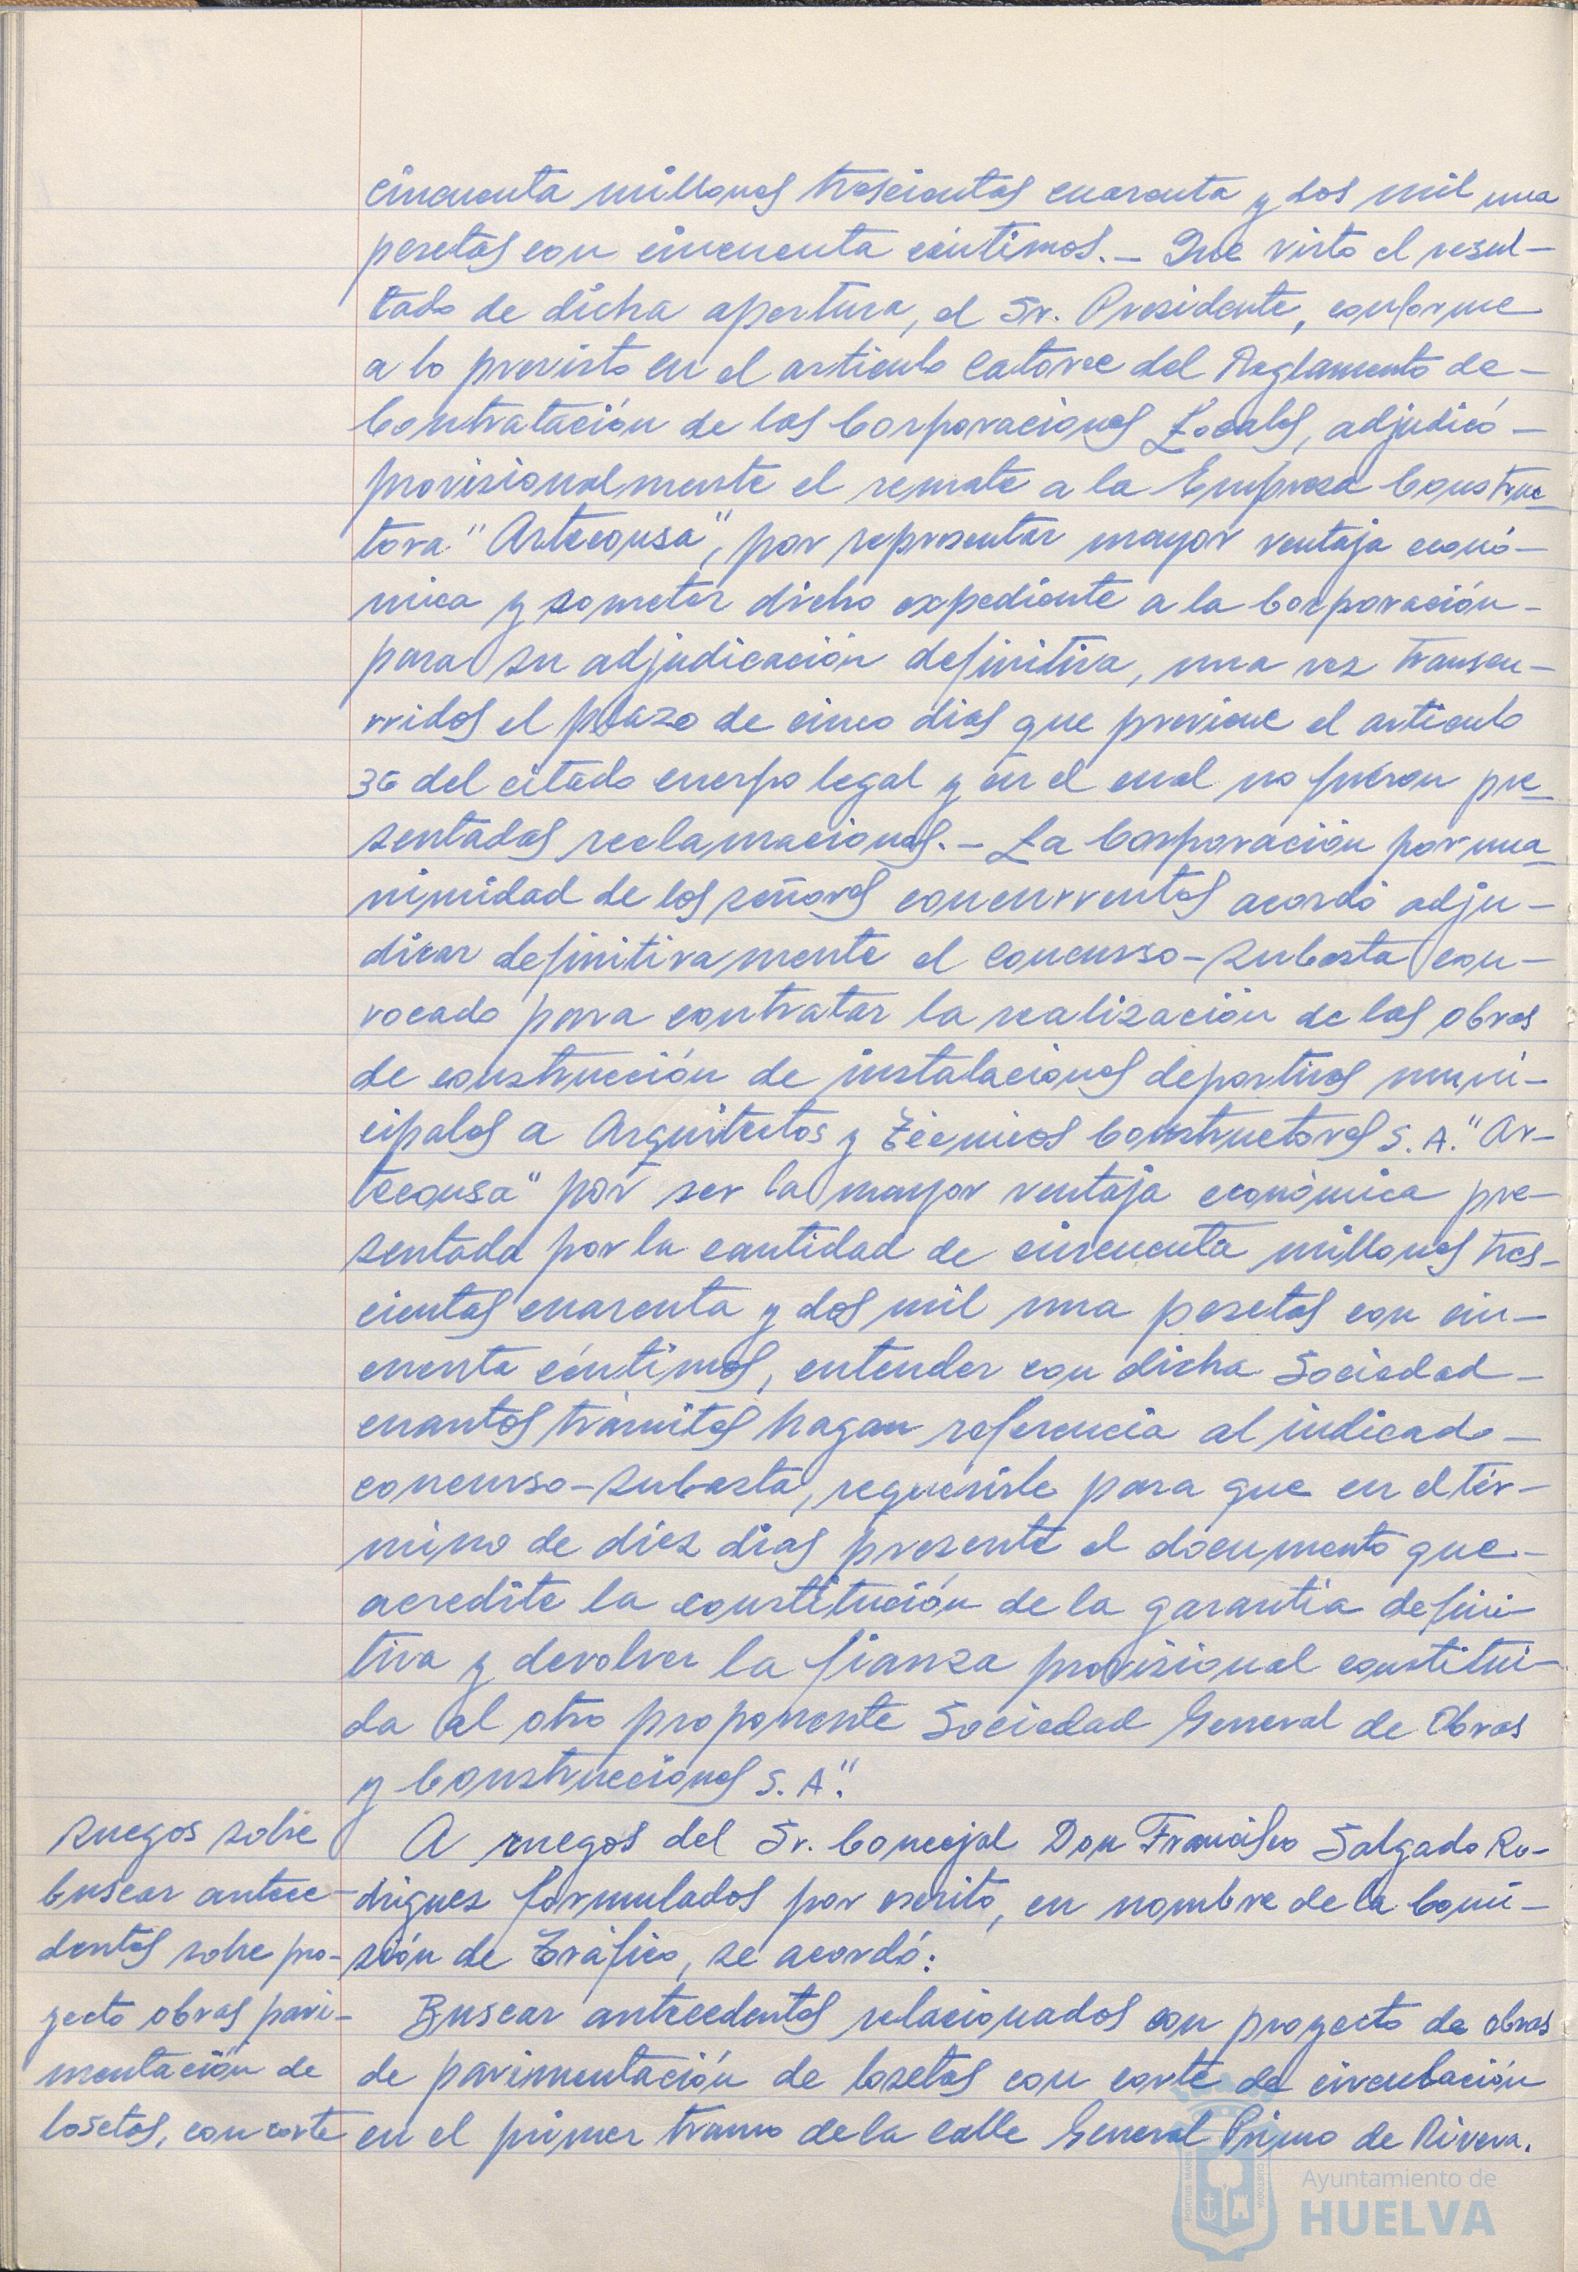 cincuenta millones trescientas cuarenta y dos mil una
pesetas con cincuenta céntimos.— Que visto el resul-
tado de dicha apertura, el Sr. Presidente, conforme
a lo previsto en el artículo catorce del Reglamento de-
Contratación de las Corporaciones Locales, adjudicó-
provisionalmente el remate a la Empresa Construc-
tora "Artecousa", por representar mayor ventaja econó-
mica y someter dicho expediente a la Corporación-
para su adjudicación definitiva, una vez transcu-
rridos el plazo de cinco dias que previene el articulo
36 del citado cuerpo legal y en el cual no fueron pre-
sentadas reclamaciones.— La Corporación por una-
nimidad de los señores concurrentes acordó adju-
dicar definitivamente el concurso-subasta con-
vocado para contratar la realización de las obras
de construcción de instalaciones deportivas muni-
cipales a Arquitectos y Técnicos Constructores S. A. "Ar-
tecousa" por ser la mayor ventaja económica pre-
sentada por la cantidad de cincuenta millones tres-
cientas cuarenta y dos mil una pesetas con cin-
cuenta céntimos, entender con dicha Sociedad-
cuantos trámites hagan referencia al indicado-
concurso-subasta, requerirle para que en el tér-
mino de diez dias presente el documento que-
acredite la constitución de la garantia defini-
tiva y devolver la fianza provisional constitui-
da al otro proponente Sociedad General de Obras
y Construcciones S. A".
Ruegos sobre
buscar antece-
dentes sobre pro-
yecto obras pavi-
mentación de
losetas, con corte
A ruegos del Sr. Concejal Don Francisco Salgado Ro-
driguez formulados por escrito, en nombre de la Comi-
sión de Tráfico, se acordó:
Buscar antecedentes relacionados con proyecto de obras
de pavimentación de losetas con corte de circulación
en el primer tramo de la calle General Primo de Rivera.
Ayuntamiento de
HUELVA